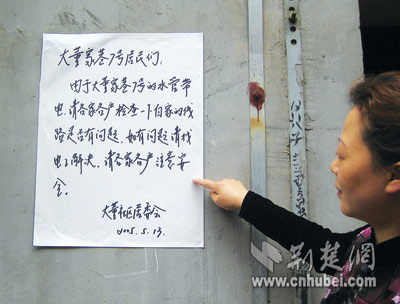 大董家巷7号居民们:
由于大董家巷7号的水管带
电.请各家各户检查一下自家的线
路是否有问题,如有问题请找
电工解决.请各家各户注意安
全。
大董社区居委会
2005.5.13.
荆楚网
www.cnhubei.com